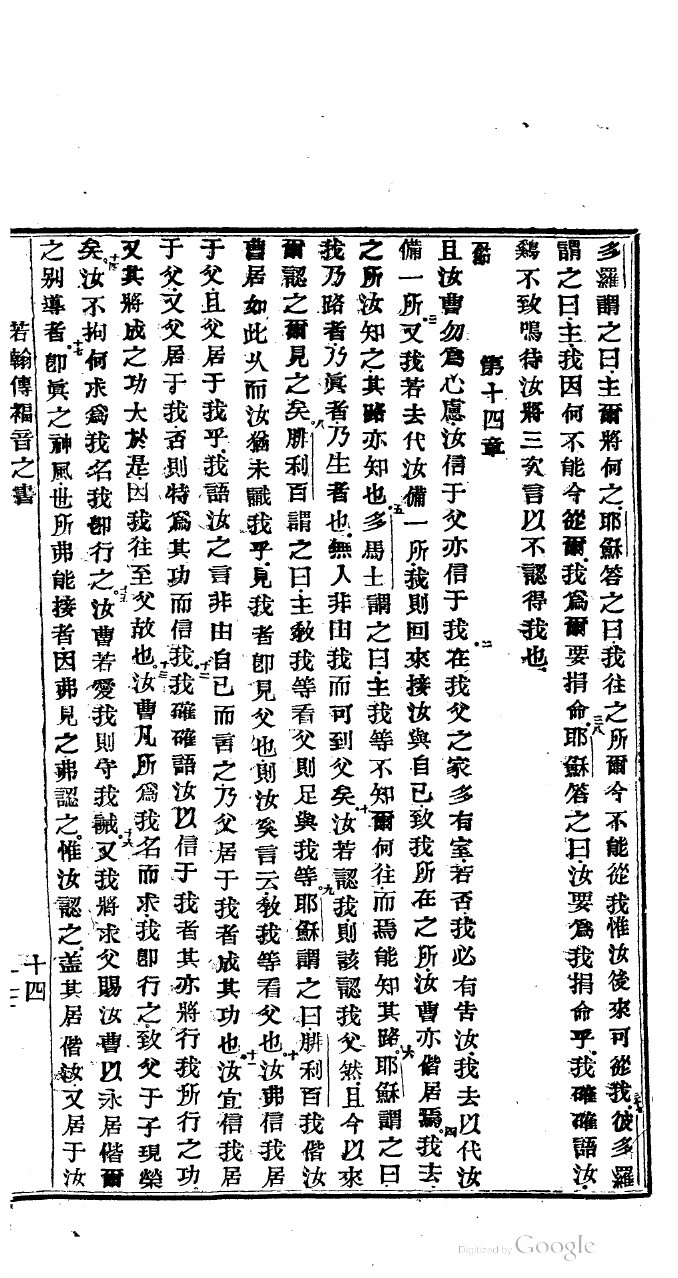 多羅謂之曰主爾將何之耶穌答之曰我往之所爾今不能從我惟汝後來可從我彼多羅
三七
謂之曰主我因何不能今從爾我爲爾要捐命耶穌答之曰汝要爲我捐命乎我確確語汝
三八
鷄不致鳴待汝將三次言以不認得我也
第十四章
節
且汝曹勿爲心慮汝信于父亦信于我在我父之家多有室若否我必有告汝我去以代汝
二
備一所又我若去代汝備一所我則回來接汝與自己致我所在之所汝曹亦偕居焉我去
三
四
之所汝知之其路亦知也多馬士謂之曰主我等不知爾何往而焉能知其路耶穌謂之曰
五
六
我乃路者乃眞者乃生者也無人非由我而可到父矣汝若認我則該認我父然且今以來
爾認之爾見之矣腓利百謂之曰主敎我等看父則足與我等耶穌謂之曰腓利百我偕汝
八
九
曹居如此久而汝猶未識我乎見我者卽見父也則汝奚言云敎我等看父也汝弗信我居
十
于父且父居于我乎我語汝之言非由自己而言之乃父居于我者成其功也汝宜信我居
十一
于父又父居于我否則特爲其功而信我我確確語汝以信于我者其亦將行我所行之功
十二
又其將成之功大於是因我往至父故也汝曹凡所爲我名而求我卽行之致父于子現榮
十三
矣汝不拘何求爲我名我卽行之汝曹若愛我則守我誡又我將求父賜汝曹以永居偕爾
十四
十五
十六
之別導者卽眞之神風世所弗能接者因弗見之弗認之惟汝認之蓋其居偕汝又居于汝
十七
若翰傳福音之書
十四
Digitized by Google